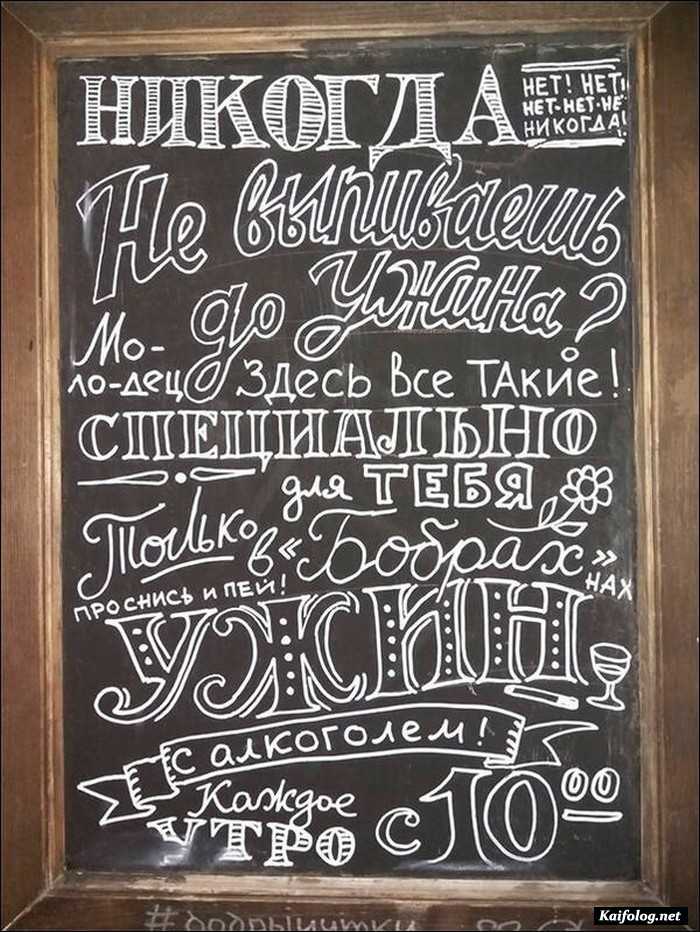 НИКОГДА
НЕТ! НЕТ!
НЕТ-НЕТ-НЕ
НИКОГДА!
Не выпиваешь
до ужина?
Мо-
ло-дец Здесь все такие!
СПЕЦИАЛЬНО
для ТЕБЯ
Только в «Бобрах»
ПРОСНИСЬ И ПЕЙ!
НАХ
УЖИН
с алкоголем!
Каждое
УТРО с 10 00
Kaifolog.net